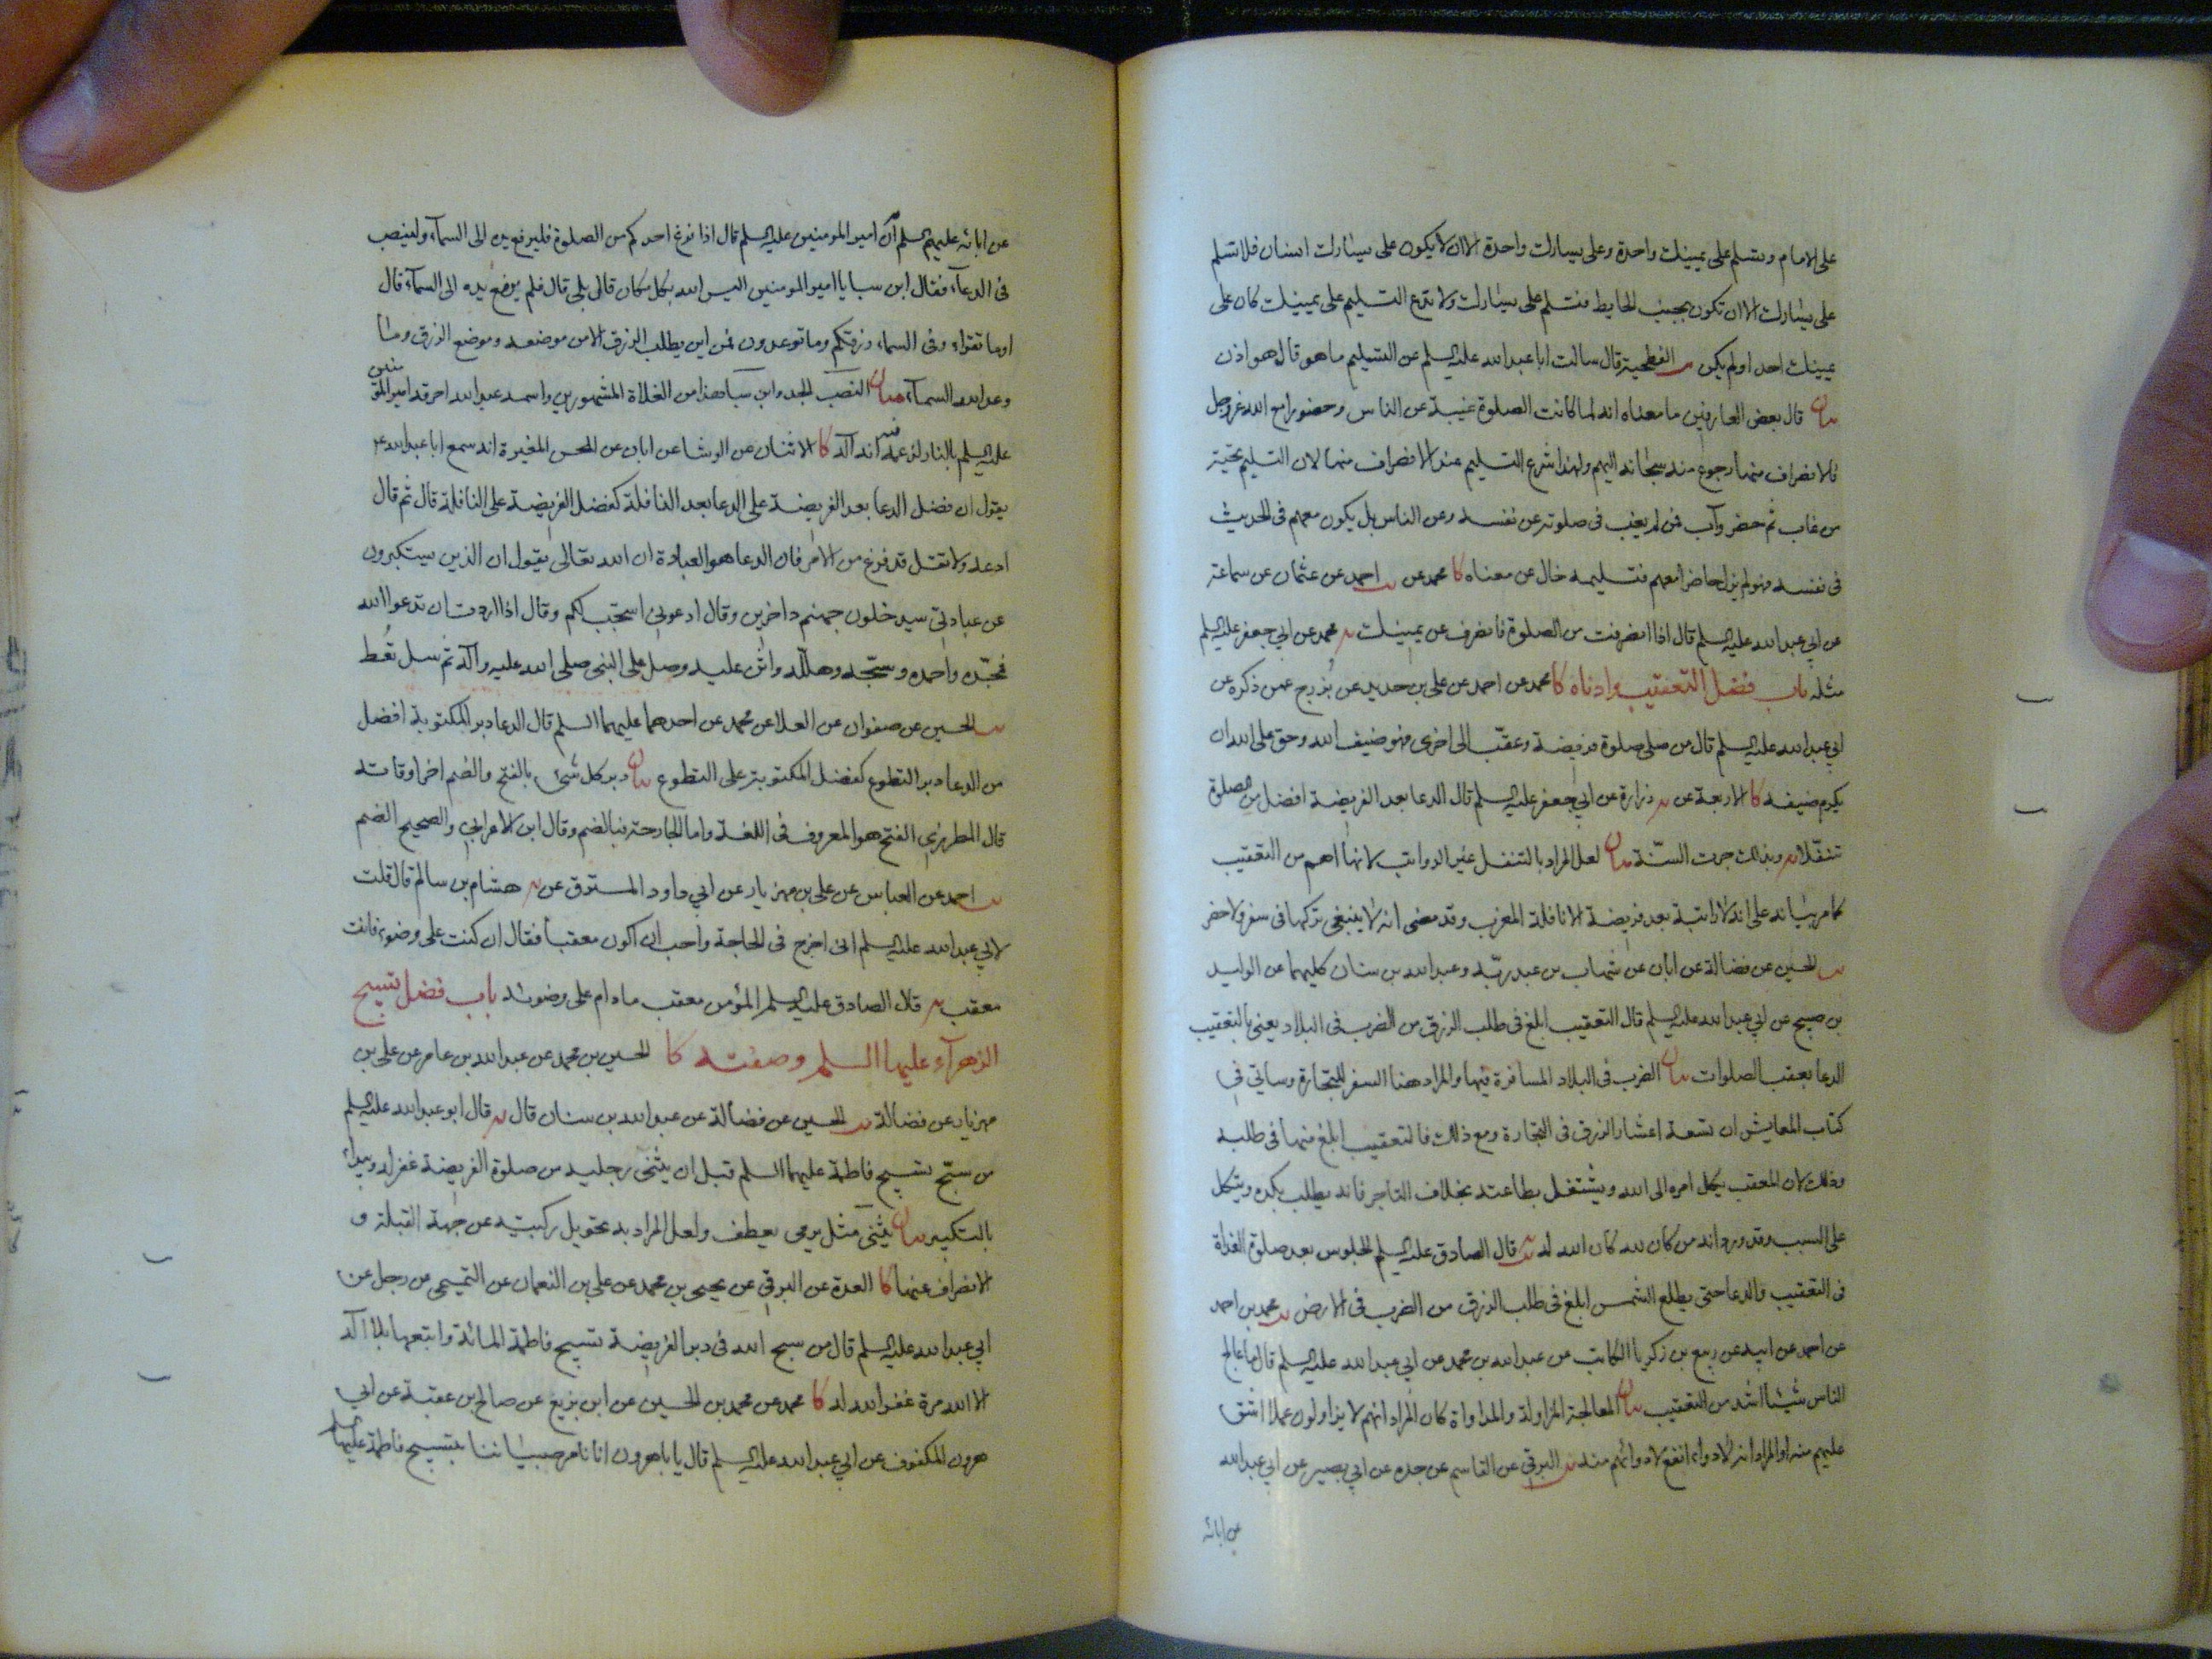 على الامام وتسلم على يمينك واحدة وعلى يسارك واحدة الا ان لا يكون على يسارك انسان فلا تسلم
على يسارك الا ان تكون بجنب الحايط فتسلم على يسارك ولا تدع التسليم على يمينك كان على
يمينك احد او لم يكن يب الفطحية قال سالت ابا عبد الله عليه السلم عن التسليم ما هو قال هو اذن
بيان قال بعض العارفين ما معناه انه لما كانت الصلوة غيبة عن الناس وحضورا مع الله عز وجل
فالانصراف منها رجوع منه سبحانه اليهم ولهذا شرع التسليم عند الانصراف منها لان التسليم تحية
من غاب ثم حضر وآب فمن لم يغب فى صلوته عن نفسه وعن الناس بل يكون معهم فى الحديث
فى نفسه فهو لم يزل حاضرا معهم فتسليمه خال عن معناه كا محمد عن يب احمد عن عثمان عن سماعة
عن ابي عبد الله عليه السلم قال اذا انصرفت من الصلوة فانصرف عن يمينك يه محمد عن ابي جعفر عليه السلم
مثله باب فضل التعقيب وادناه كا محمد عن احمد عن علي بن حديد عن بزرج عمن ذكره عن
ابي عبد الله عليه السلم قال من صلى صلوة فريضة وعقّب الى اخرى فهو ضيف الله وحق على الله ان
يكرم ضيفه كا الاربعة عن يه زرارة عن ابي جعفر عليه السلم قال الدعا بعد الفريضة افضل من الصلوة
تنفّلا يه وبذلك جرت السنّة بيان لعل المراد بالتنفل غير الرواتب لانها اهم من التعقيب
كما مر بيانه على انه لا راتبة بعد فريضة الا نافلة المغرب وقد مضى انه لا ينبغي تركها فى سفر ولا حضر
يب الحسين عن فضالة عن ابان عن شهاب بن عبد ربّه وعبد الله بن سنان كليهما عن الوليد
بن صبيح عن ابي عبد الله عليه السلم قال التعقيب ابلغ فى طلب الرزق من الضرب فى البلاد يعني بالتعقيب
الدعا بعقب الصلوات بيان الضرب فى البلاد المسافرة فيها والمراد هنا السفر للتجارة وسياتي في
كتاب المعايش ان تسعة اعشار الرزق فى التجارة ومع ذلك فالتعقيب ابلغ منها فى طلبه
وذلك لان المعقب يكل امره الى الله ويشتغل بطاعته بخلاف التاجر فانه يطلب بكده ويتكل
على السبب وقد ورد انه من كان لله كان الله له يه قال الصادق عليه السلم الجلوس بعد صلوة الغداة
فى التعقيب والدعا حتى يطلع الشمس ابلغ فى طلب الرزق من الضرب فى الارض يب محمد بن احمد
عن احمد عن ابيه عن ربيع بن زكريا الكاتب عن عبد الله بن محمد عن ابي عبد الله عليه السلم قال ما عالج
الناس شيئا اشد من التعقيب بيان المعالجة المزاولة والمداواة كان المراد انهم لا يزاولون عملا اشق
عليهم منه او المراد انه لا دواء انفع لادوائهم منه يب البرقي عن القاسم عن جده عن ابي بصير عن ابي عبد الله
عن ابائه
عن ابائه عليهم السلم ان امير المومنين عليه السلم قال اذا فرغ احدكم من الصلوة فليرفع يديه الى السمآء ولينصب
فى الدعآء فقال ابن سبا يا امير المومنين اليس الله بكل مكان قال بلى قال فلم يرفع يديه الى السمآء قال
اوما تقراء وفى السماء رزقكم وما توعدون فمن اين يطلب الرزق الا من موضعه وموضع الرزق وما
وعد الله السمآء بيان النصب الجد وابن سبا هذا من الغلاة المشهورين واسمه عبد الله احرقه امير المؤمنين
عليه السلم بالنار لزعمه فيه انه آله كا الاثنان عن الوشا عن ابان عن الحسن المغيرة انه سمع ابا عبد الله ع
يقول ان فضل الدعا بعد الفريضة على الدعا بعد النافلة كفضل الفريضة على النافلة قال ثم قال
ادعه ولا تقل قد فرغ من الامر فان الدعا هو العبادة ان الله تعالى يقول ان الذين يستكبرون
عن عبادتي سيدخلون جهنم داخرين وقال ادعوني استجب لكم وقال اذا اردت ان تدعو الله
فمجّده واحمده وسبّحه وهلّله واثن عليه وصل على النبى صلى الله عليه وآله ثم سل تُعط
يب الحسين عن صفوان عن العلا عن محمد عن احدهما عليهما السلم قال الدعا دبر المكتوبة افضل
من الدعا دبر التطوع كفضل المكتوبة على التطوع بيان دبر كل شئ بالفتح والضم اخر اوقاته
قال المطرزي الفتح هو المعروف فى اللغة واما الجارحة فبالضم وقال ابن الاعرابي والصحيح الضم
يب احمد عن العباس عن علي بن مهزيار عن ابي داود المسترق عن يه هشام بن سالم قال قلت
لابي عبد الله عليه السلم اني اخرج فى الحاجة واحب ان اكون معقبا فقال ان كنت على وضوء فانت
معقب يه قال الصادق عليه السلم المؤمن معقب ما دام على وضوئه باب فضل تسبيح
الزهرآء عليها السلم وصفته كا الحسين بن محمد عن عبد الله بن عامر عن علي بن
مهزيار عن فضالة يب الحسين عن فضالة عن عبد الله بن سنان قال يه قال ابو عبد الله عليه السلم
من سبّح تسبيح فاطمة عليهما السلم قبل ان يثنى رجليه من صلوة الفريضة غفر له ويبداء
بالتكبير بيان يثنى مثل يرمى يعطف ولعل المراد به تحويل ركبتيه عن جهة القبلة و
الانصراف عنها كا العدة عن البرقي عن يحيى بن محمد عن علي بن النعمان عن التميمى عن رجل عن
ابي عبد الله عليه السلم قال من سبح الله فى دبر الفريضة تسبيح فاطمة المائة واتبعها بلا آله
الا الله مرة غفر الله له كا محمد عن محمد بن الحسين عن ابن بزيع عن صالح بن عقبة عن ابي
هرون المكفوف عن ابي عبد الله عليه السلم قال يا باهرون انا نامر صبياننا بتسبيح فاطمة عليها السلم